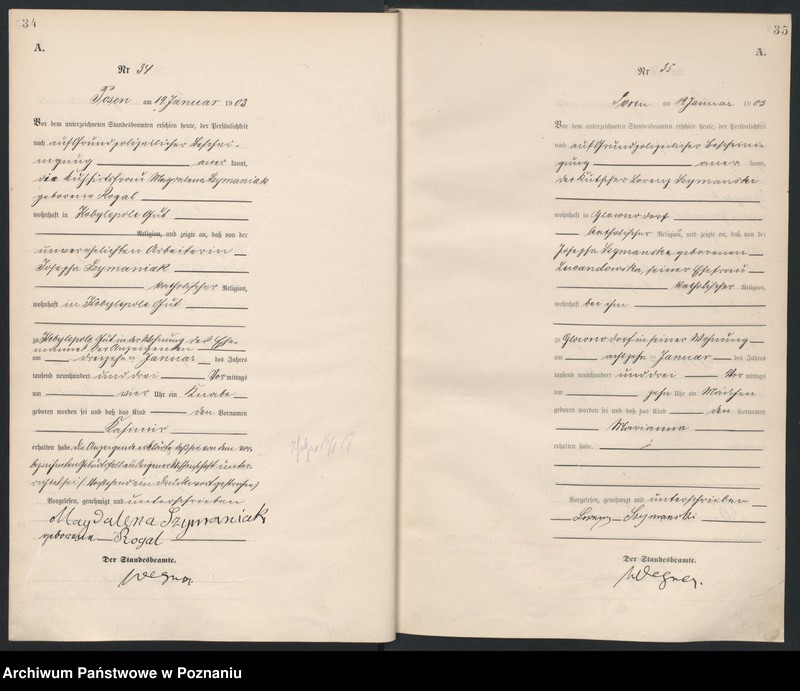 34
A.
Nr 34
Posen am 19 Januar 1903
Vor dem unterzeichneten Standesbeamten erschien heute, der Persönlichkeit
nach auf Grund polizeilicher Beschei-
nigung aner kannt,
die Kuhhirtsfrau Magdalena Szymaniak
geborene Rogal
wohnhaft in Kobylepole Gut
Religion, und zeigte an, daß von der
unverehelichten Arbeiterin
Josepha Szymaniak
katholischer Religion,
wohnhaft in Kobylepole Gut
zu Kobylepole Gut in der Wohnung des Ehe-
mannes der Anzeigenden
am dreizehnten Januar des Jahres
tausend neunhundert und drei Vormittags
um vier Uhr ein Knabe
geboren worden sei und daß das Kind den Vornamen
Kasimir
erhalten habe. Die Anzeigende erklärte, daß sie von dem vor-
bezeichneten Geburtsfall aus eigener Wissenschaft unter-
richtet sei. (Vorstehend ein Druckwort gestrichen)
Vorgelesen, genehmigt und unterschrieben
Magdalena Szymaniak
geborene Rogal
Der Standesbeamte.
Wegner
35
A.
Nr 35
Posen am 19 Januar 1903
Vor dem unterzeichneten Standesbeamten erschien heute, der Persönlichkeit
nach auf Grund polizeilicher Bescheini-
gung aner kannt,
der Kutscher Lorenz Szymanski
wohnhaft in Glowno Dorf
katholischer Religion, und zeigte an, daß von der
Josepha Szymanska geborenen
Lewandowska, seiner Ehefrau
katholischer Religion,
wohnhaft bei ihm
zu Glowno Dorf in seiner Wohnung
am achtzehnten Januar des Jahres
tausend neunhundert und drei Vormittags
um zehn Uhr ein Mädchen
geboren worden sei und daß das Kind den Vornamen
Marianna
erhalten habe.
Vorgelesen, genehmigt und unterschrieben
Lorenz Szymanski
Der Standesbeamte.
Wegner.
Archiwum Państwowe w Poznaniu